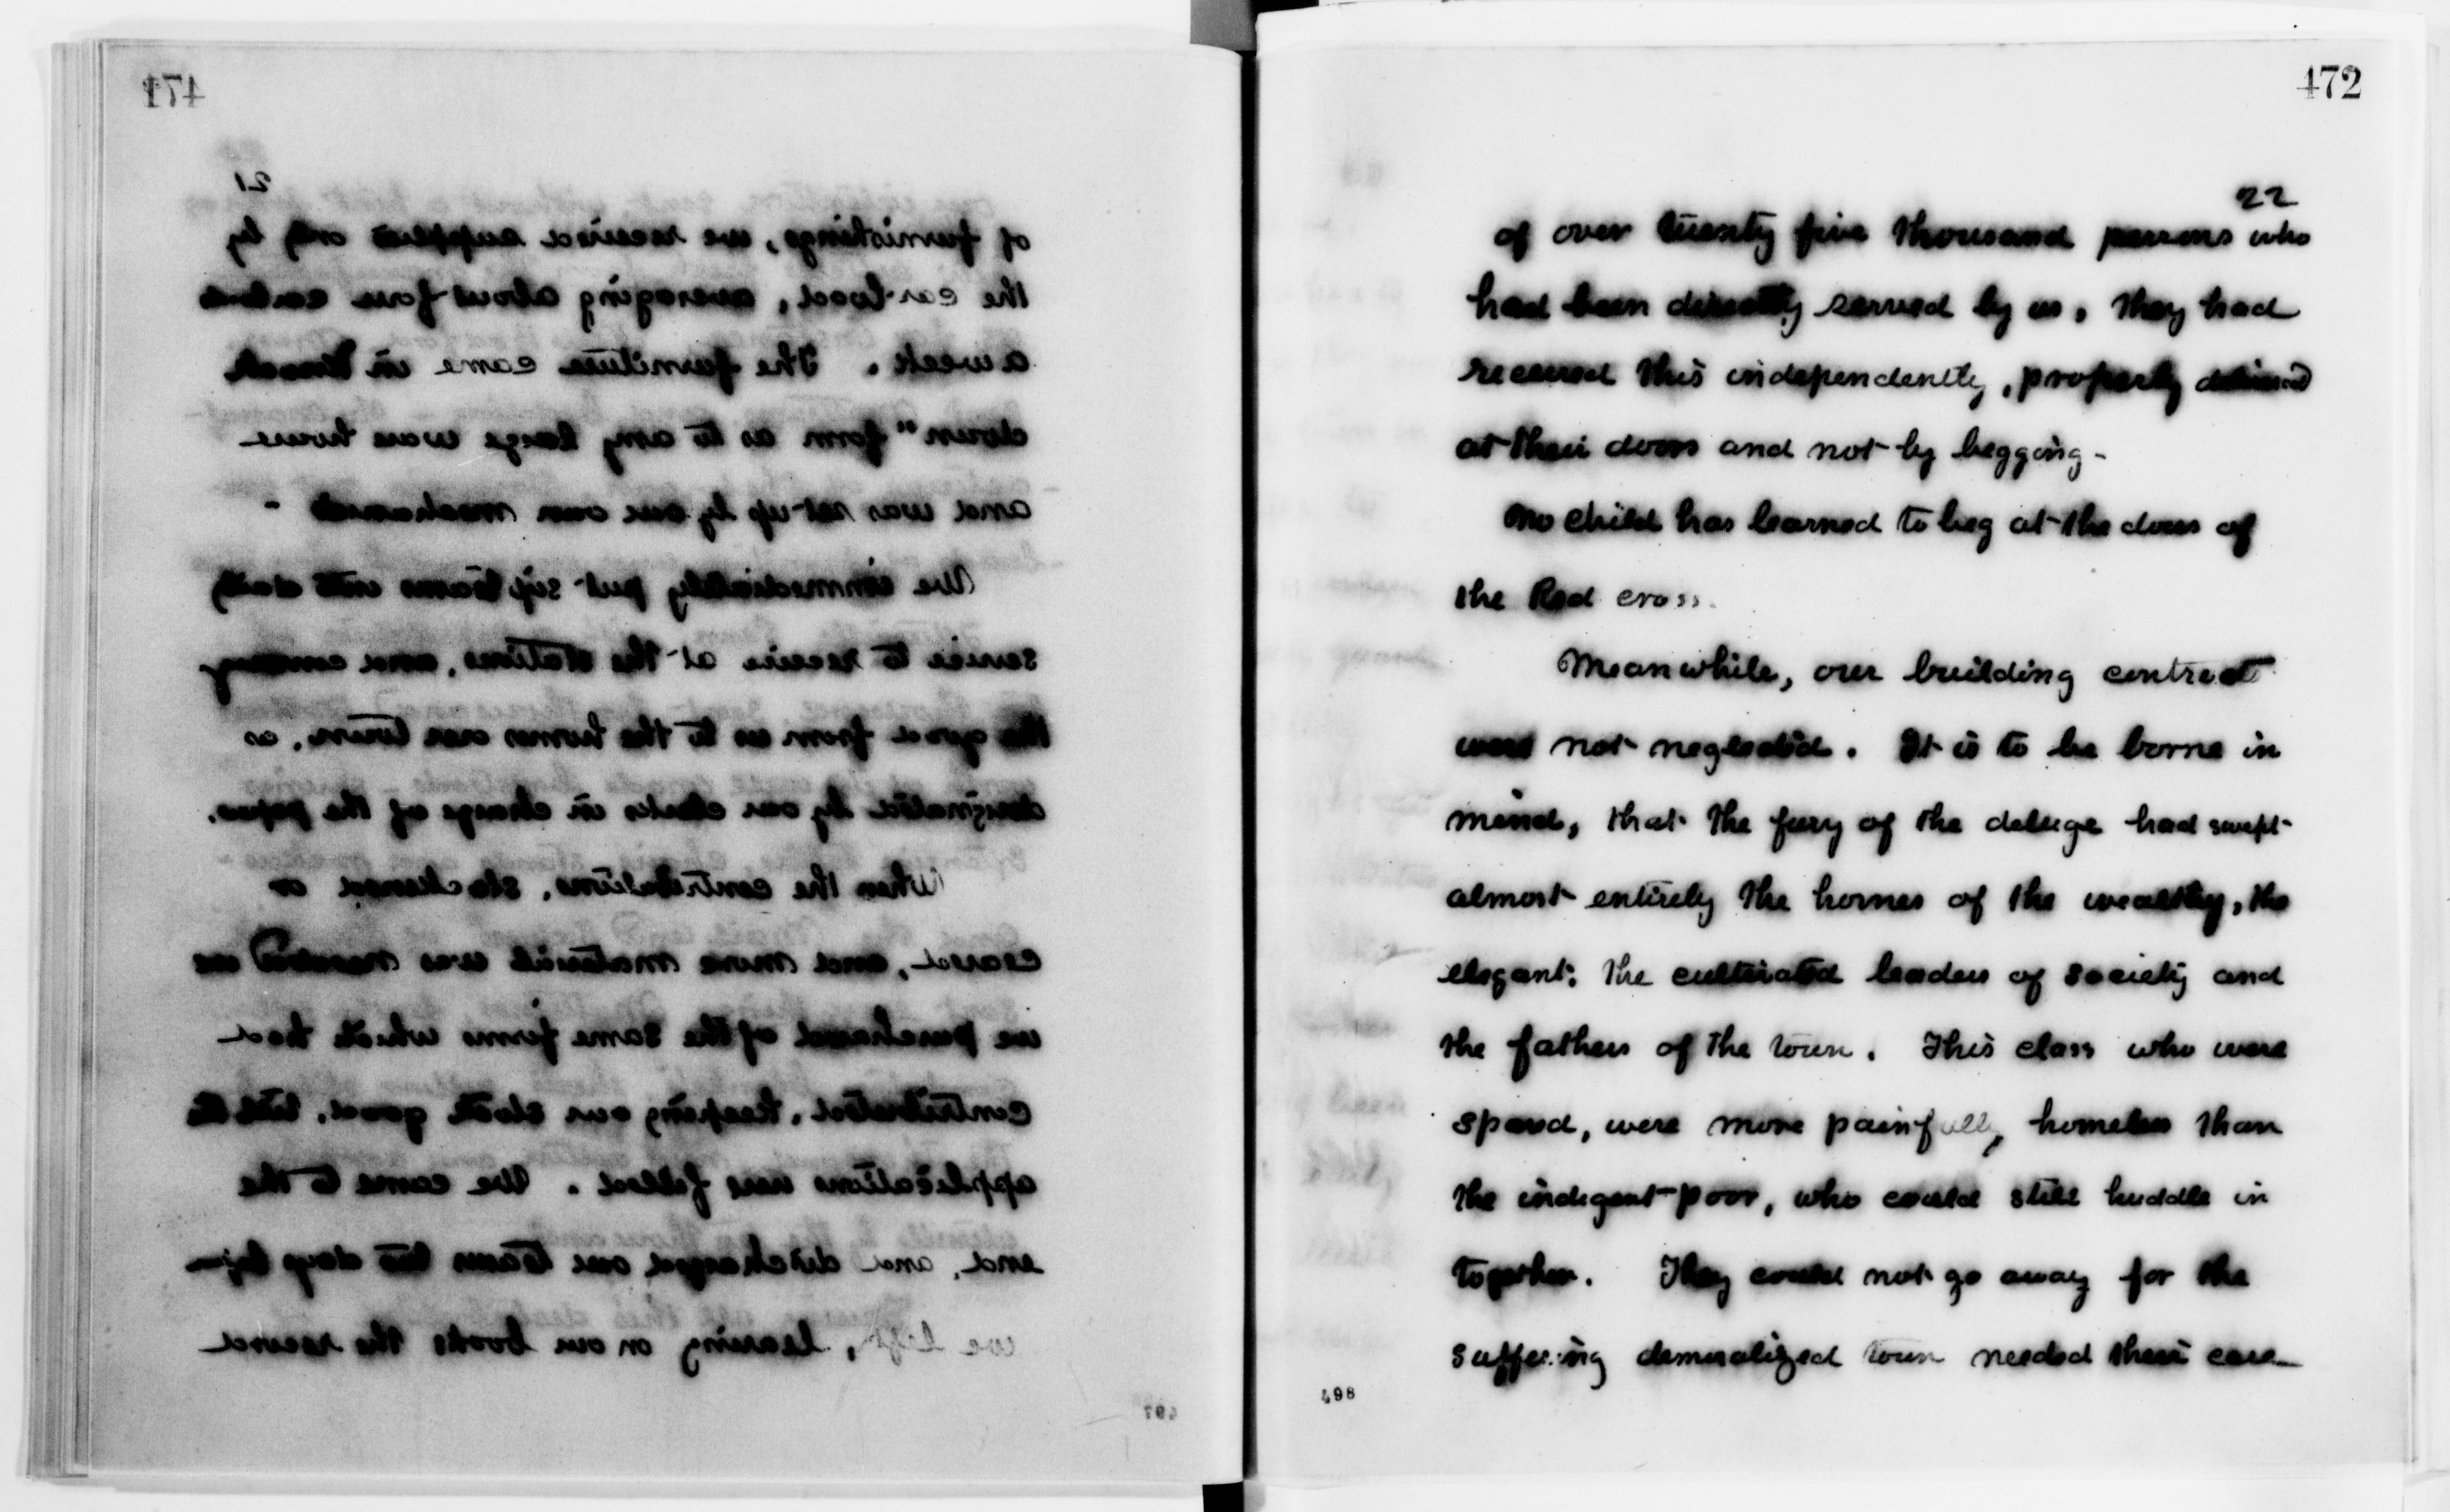 471
21
of furnishings, we received supplies only by
the car-load, averaging about four carloads
a week. The furniture came in "knock
down" form as to any large ware house
and was set up by our own mechanics -
We immediately put six teams into daily
service to receive at the stations, and convey
the goods from us to the homes over town, as
designated by our clerks in charge of the papers.
When the contributions, slackened or
ceased, and more material was needed
we purchased of the same firms which had
contributed, keeping our stock good, till the
applications were filled. We came to the
end, and discharged our teams two days before
we left, leaving on our books the record
497
472
22
of over twenty five thousand persons who
had been directly served by us, they had
received this independently, properly delivered
at their doors and not by begging -
No child has learned to beg at the doors of
the Red cross.
Meanwhile, our building contract
were not neglected. It is to be borne in
mind, that the fury of the deluge had swept
almost entirely the homes of the wealthy, the
elegant; the cultivated leaders of society and
the fathers of the town. This class who were
spared, were more painfully, homeless than
the indigent poor, who could still huddle in
together. They could not go away for the
suffering demoralized town needed their care
498